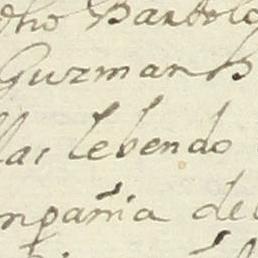 dho Bartolo
Guzman
llas lebendo
mpañia de